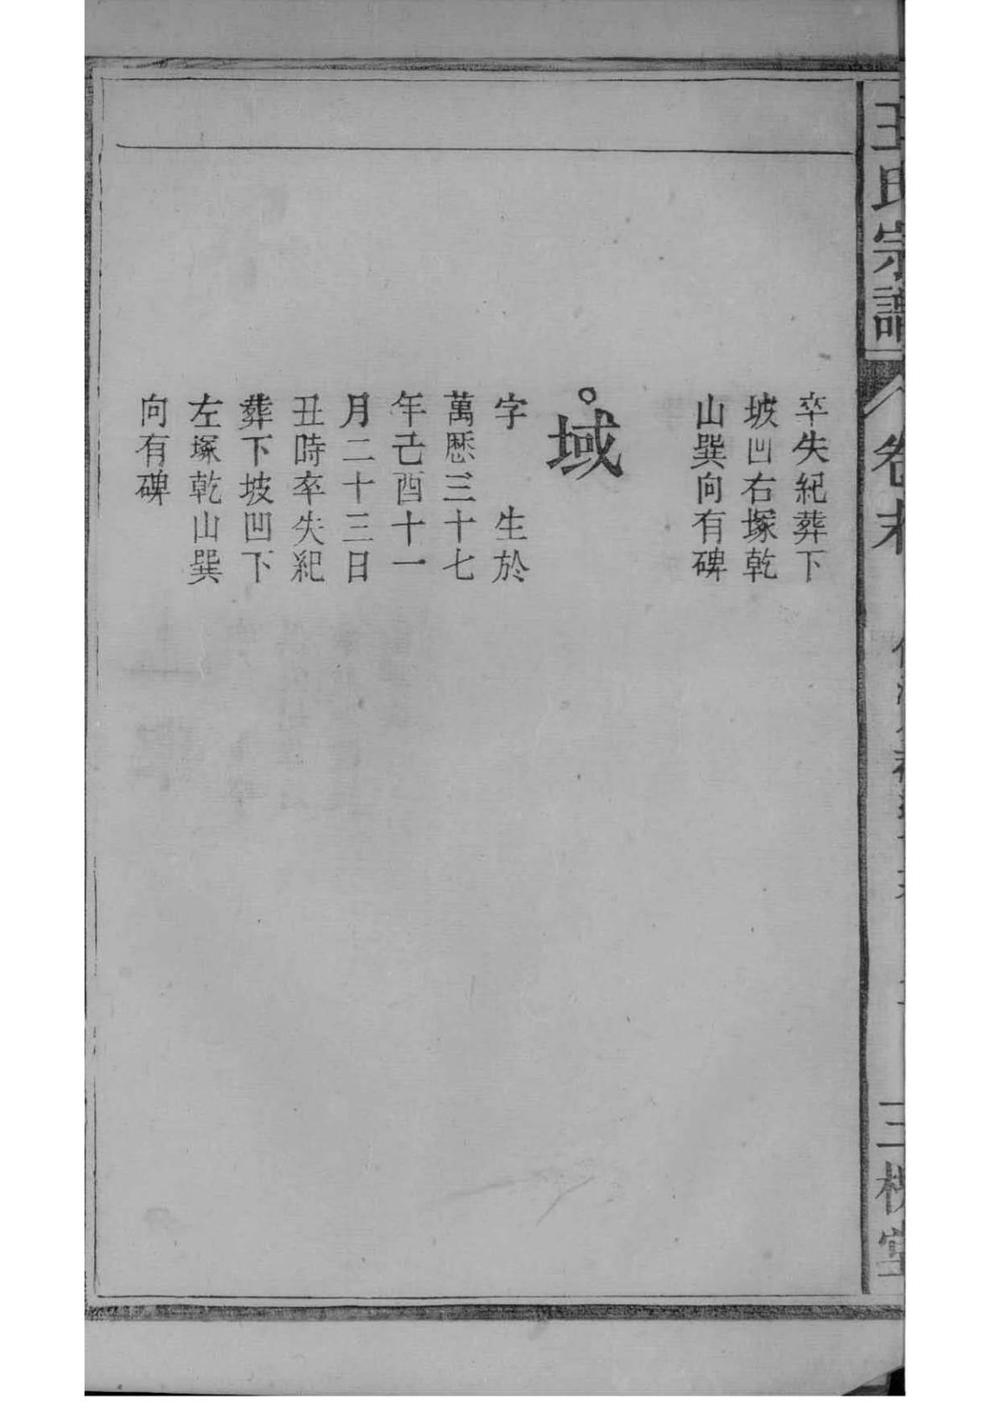 王氏宗譜
卷末
三槐堂
卒失紀葬下
坡凹右塚乾
山巽向有碑
域
字　生於
萬厯三十七
年己酉十一
月二十三日
丑時卒失紀
葬下坡凹下
左塚乾山巽
向有碑